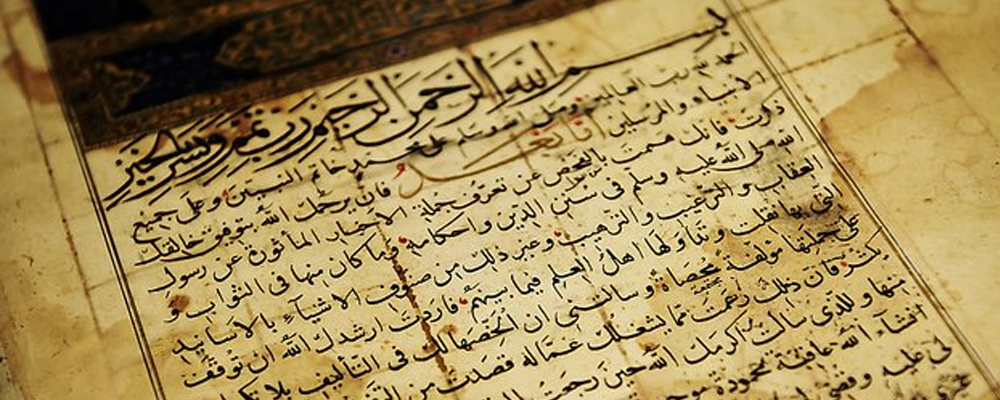 بسم الله الرحمن الرحيم رب تمم ويسر بالخير
الحمد لله رب العالمين وصلى الله على محمد خاتم النبيين وعلى جميع
الانبياء والمرسلين اما بعد فانك يرحمك الله بتوفيق خالقك
ذكرت انك هممت بالفحص عن تعرف جملة الاخبار المأثورة عن رسول
الله صلى الله عليه وسلم في سنن الدين واحكامه وما كان منها في الثواب و
العقاب والترغيب والترهيب وغير ذلك من صنوف الاشياء بالاسانيد
التي بها نقلت وتداولها اهل العلم فيما بينهم فاردت ارشدك الله ان توقف
على جملتها مؤلفة محصاة وسالتني ان الخصها لك في التأليف بلا
يكثر فان ذلك زعمت مما يشغلك عما له قصدت من
منها وللذي سالت اكرمك الله حين رجعت
انشاء الله عاقبة محمودة
لي عليه وقضي